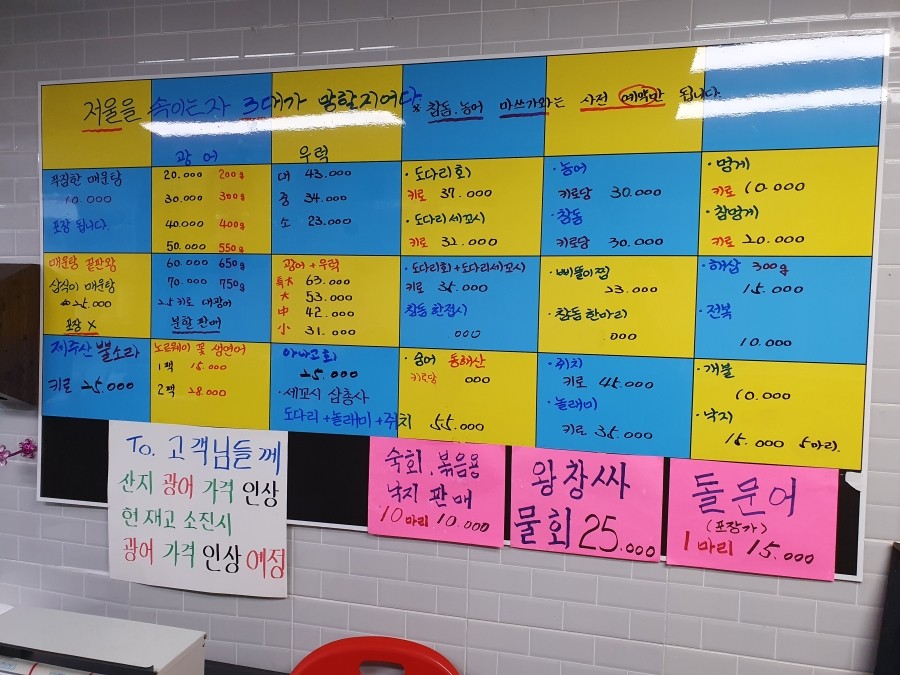 저울을 속이는자 3대가 망할지어다
* 참돔.농어 마쓰가와는 사전 예약만 됩니다.
푸짐한 매운탕
10.000
포장 됩니다.
광어
20.000 200g
30.000 300g
40.000 400g
50.000 550g
우럭
대 43.000
중 34.000
소 23.000
·도다리회
키로 37.000
·도다리세꼬시
키로 32.000
·농어
키로당 30.000
·참돔
키로당 30.000
·멍게
키로 10.000
·참멍게
키로 20.000
매운탕 끝판왕
삼식이 매운탕
25.000
포장 X
60.000 650g
70.000 750g
2.5키로 대광어
분할판매
광어+우럭
특大 63.000
大 53.000
中 42.000
小 31.000
·도다리회+도다리세꼬시
키로 35.000
참돔 한접시
000
·삐뚤이찜
23.000
·참돔 한마리
.000
·해삼 300g
15.000
·전복
10.000
제주산 뿔소라
키로 25.000
노르웨이 꽃 생연어
1팩 15.000
2팩 28.000
아나고회
25.000
·세꼬시 삼총사
도다리+놀래미+쥐치 55.000
·숭어 동해산
키로당 000
·쥐치
키로 45.000
·놀래미
키로 35.000
·개불
10.000
·낙지
15.000 5마리.
To. 고객님들께
산지 광어 가격 인상
현재고 소진시
광어 가격 인상 예정
숙회.볶음용
낙지 판매
10마리 10.000
왕창싸
물회 25.000
돌문어
(포장가)
1마리 15.000